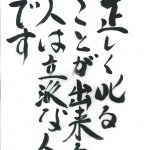 正しく叱る
ことが出来る
人は立派な人
です